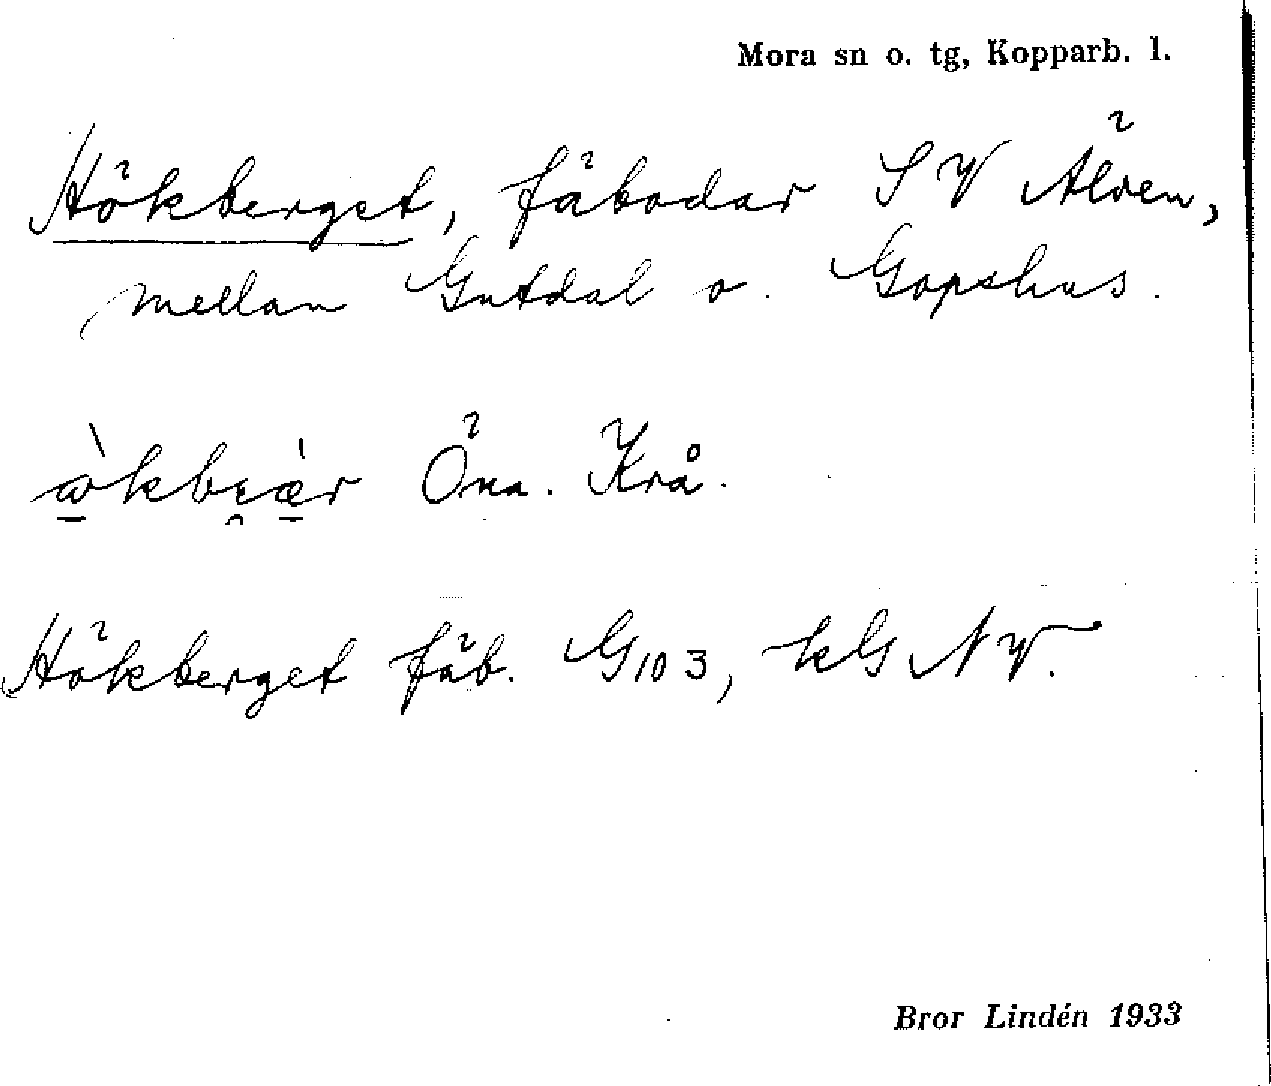 Mora sn o. tg, Kopparb. l.
Hökberget, fäbodar SV Älven,
mellan Gutdal o. Gopshus.
Öna. Krå.
Hökberget fäb. G103, kG NV.
Bror Lindén 1933